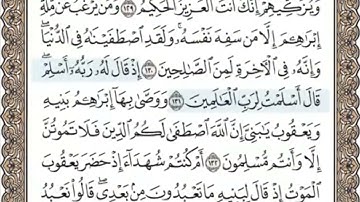 وَيُزَكِّيهِمْ إِنَّكَ أَنتَ الْعَزِيزُ الْحَكِيمُ ١٢٩ وَمَن يَرْغَبُ عَن مِّلَّةِ
إِبْرَاهِمَ إِلَّا مَن سَفِهَ نَفْسَهُ وَلَقَدِ اصْطَفَيْنَاهُ فِي الدُّنْيَا
وَإِنَّهُ فِي الْآخِرَةِ لَمِنَ الصَّالِحِينَ ١٣٠ إِذْ قَالَ لَهُ رَبُّهُ أَسْلِمْ
قَالَ أَسْلَمْتُ لِرَبِّ الْعَالَمِينَ ١٣١ وَوَصَّىٰ بِهَا إِبْرَاهِمُ بَنِيهِ
وَيَعْقُوبُ يَا بَنِيَّ إِنَّ اللَّهَ اصْطَفَىٰ لَكُمُ الدِّينَ فَلَا تَمُوتُنَّ
إِلَّا وَأَنتُم مُّسْلِمُونَ ١٣٢ أَمْ كُنتُمْ شُهَدَاءَ إِذْ حَضَرَ يَعْقُوبَ
الْمَوْتُ إِذْ قَالَ لِبَنِيهِ مَا تَعْبُدُونَ مِن بَعْدِي قَالُوا نَعْبُدُ